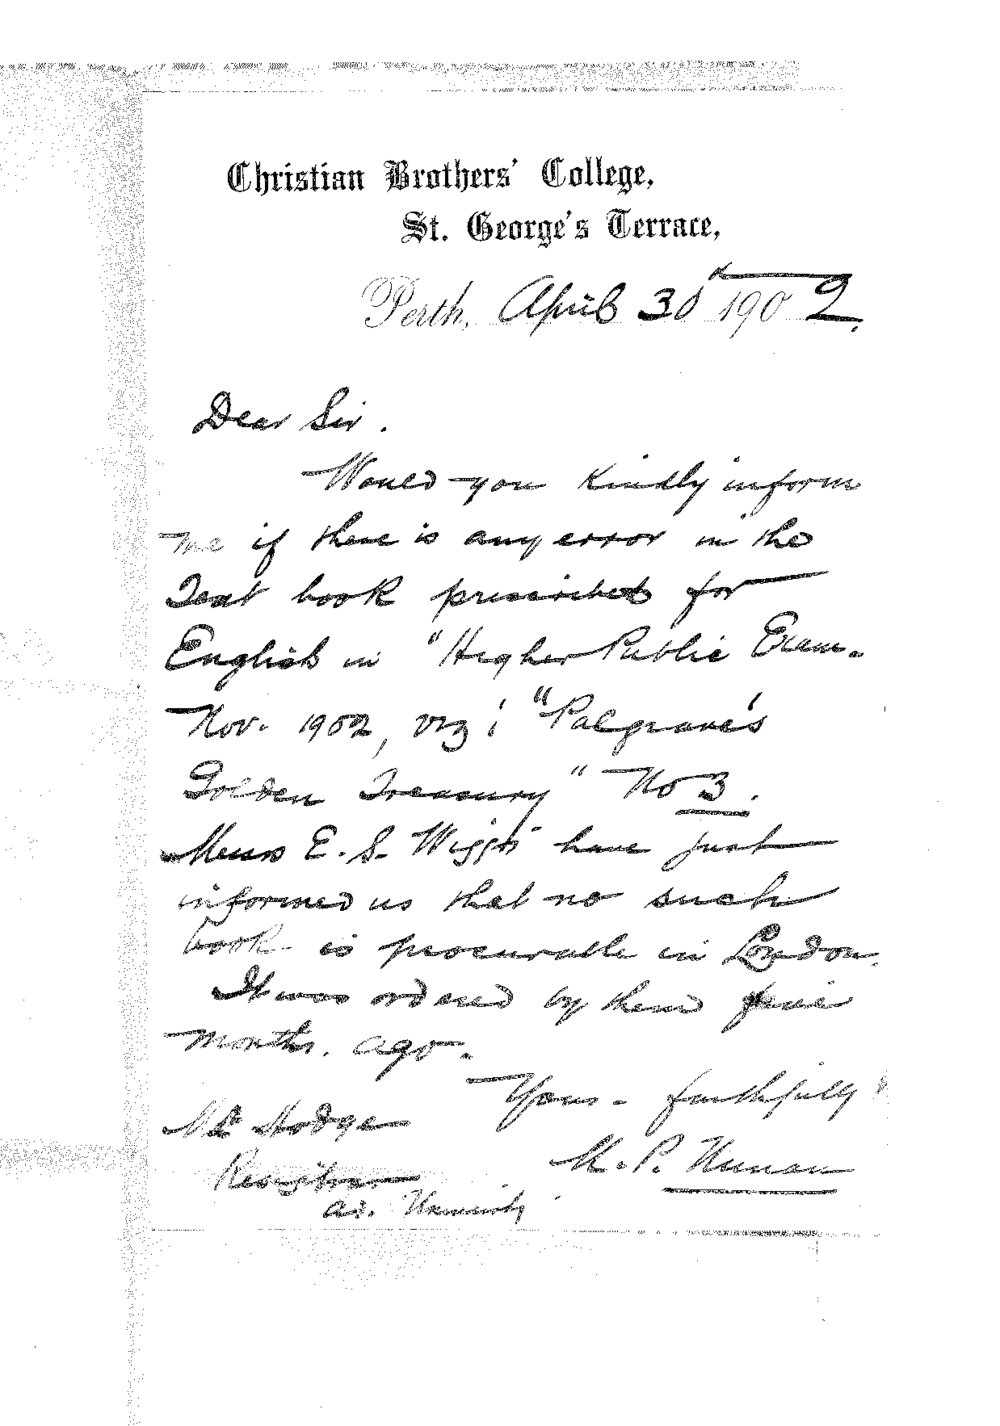 Christian Brothers' College,
St. George's Terrace,
Perth, April 30th 1902.
Dear Sir.
Would you kindly inform
me if there is any error in the
Text book prescribed for
English in "Higher Public Exam.
Nov. 1902, viz; "Palgrave's
Golden Treasury" No 3.
Messrs E. S. Wigg & have just
informed us that no such
book is procurable in London.
It was ordered by them five
months. ago.
Yours. faithfully
Mr Hodge
M. P. Nunan
Registrar
Ad. University